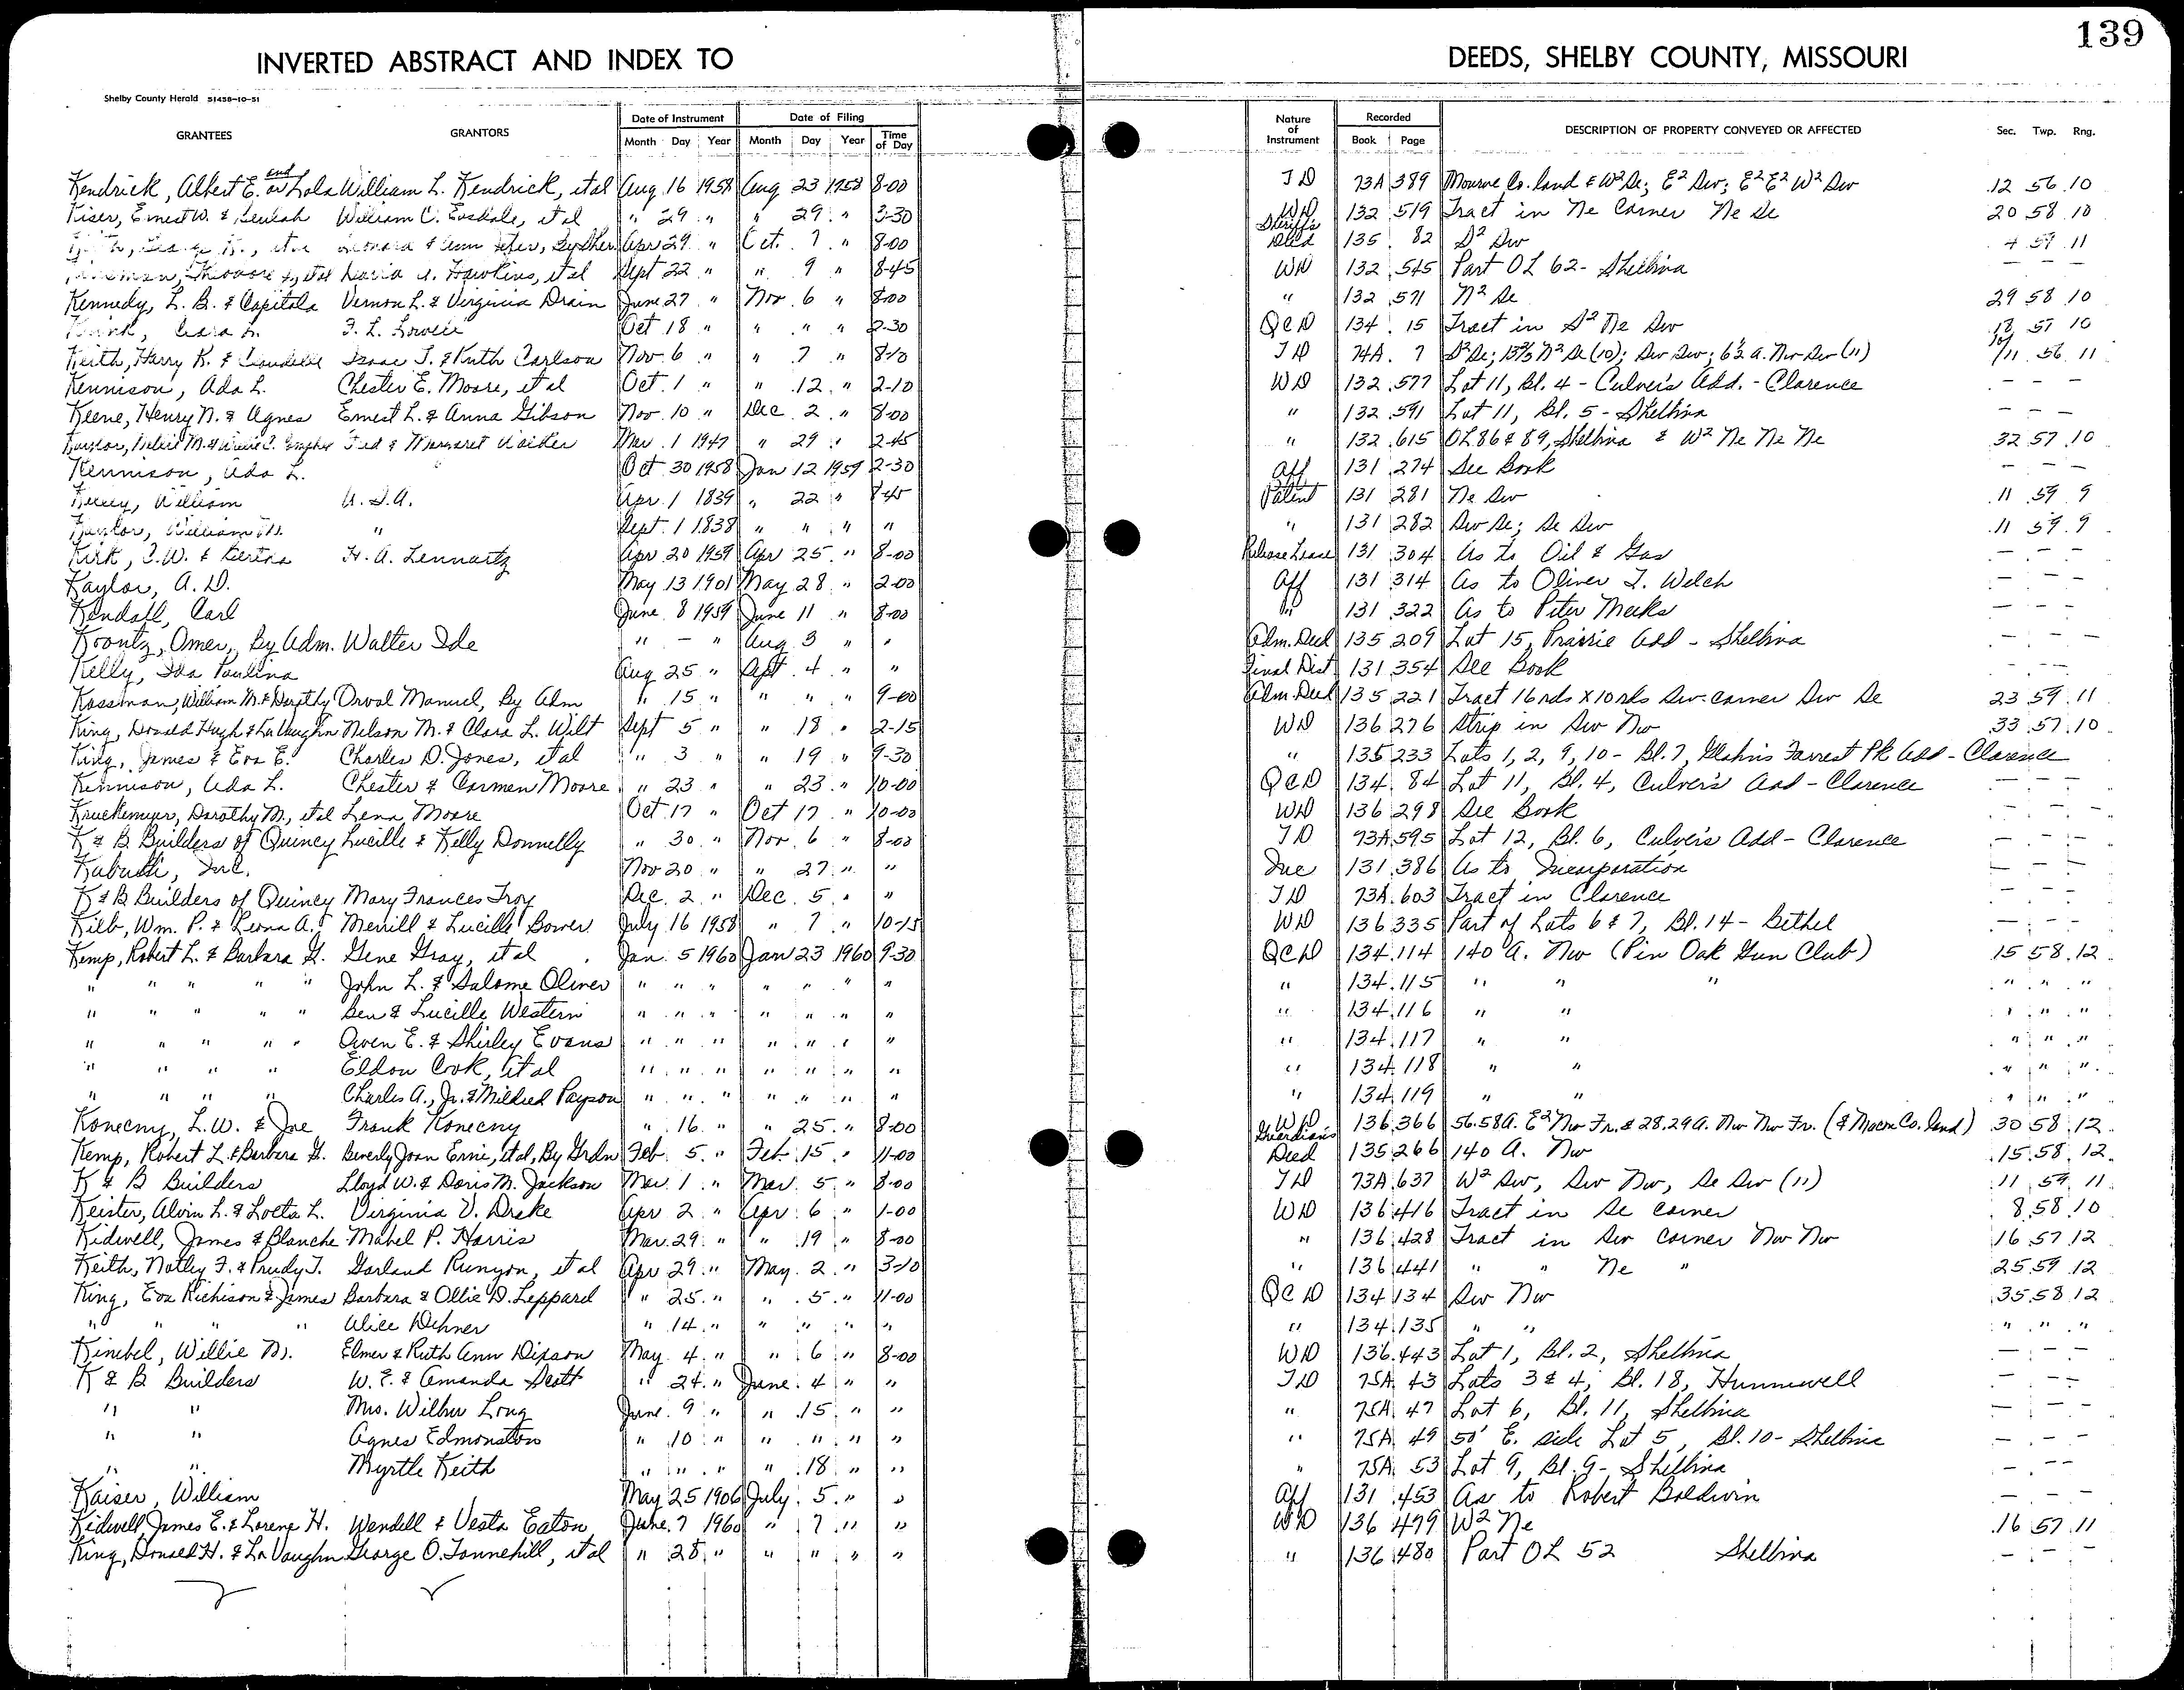 139
INVERTED ABSTRACT AND INDEX TO DEEDS, SHELBY COUNTY, MISSOURI
Shelby County Herald 51458-10-51
GRANTEES GRANTORS Date of Instrument Date of Filing Nature of Instrument Recorded DESCRIPTION OF PROPERTY CONVEYED OR AFFECTED Sec. Twp. Rng.
Month Day Year Month Day Year Time of Day Book Page
Kendrick, Albert E. and or Lola William L. Kendrick, et al Aug 16 1958 Aug 23 1958 8-00 TD 73A 389 Monroe Co. land & W² Se; E² Sw; E² E² W² Sw 12 56 10
Kiser, Ernest W. & Beulah William C. et al " 29 " " 29 " 3-30 WD 132 519 Tract in Ne Corner Ne Se 20 58 10
Apr 29 " Oct. 7 " 8-00 Sheriff's Deed 135 82 S² Sw 4 59 11
Hawkins, et al Sept 22 " " 9 " 8-45 WD 132 545 Part OL 62 - Shelbina — —
Kennedy, L. B. & Capitola Vernon L. & Virginia Drain June 27 " Nov. 6 " 8-00 " 132 571 N² Se 29 58 10
F. L. Oct 18 " " " " 2-30 QCD 134 15 Tract in S² Ne Sw 18 57 10
Keith, Harry K. & Isaac J. & Ruth Carlson Nov. 6 " " 7 " TD 74A 7 S² Se; N² Se (10); Sw Sw; Nw Sw (11) 10/11 56 11
Kennison, Ada L. Chester E. Moore, et al Oct. 1 " " 12 " 2-10 WD 132 577 Lot 11, Bl. 4 - Culver's Add. - Clarence — — —
Keene, Henry N. & Agnes Ernest L. & Anna Gibson Nov. 10 " Dec. 2 " 8-00 " 132 591 Lot 11, Bl. 5 - Shelbina — — —
Fred & Margaret Mar. 1 1947 " 29 " 2-45 " 132 615 OL 86 & 89, Shelbina & W² Ne Ne Ne 32 57 10
Kennison, Ada L. Oct 30 1958 Jan 12 1959 2-30 Aff 131 274 See Book — — —
William U.S.A. Apr. 1 1839 " 22 " 8-45 Patent 131 281 Ne Sw 11 59 9
William " Sept. 1 1838 " " " " " 131 282 Sw Se; Se Sw 11 59 9
Kirk, & Bertha H. A. Lennartz Apr 20 1959 Apr 25 " 8-00 Release Lease 131 304 As to Oil & Gas — — —
Kaylor, A. D. May 13 1901 May 28 " 2-00 Aff 131 314 As to Oliver T. Welch — — —
Kendall, Carl June 8 1959 June 11 " 8-00 " 131 322 As to Peter Meeks — — —
Koontz, Omer, By Adm. Walter Ide " — " Aug 3 " " Adm. Deed 135 209 Lot 15, Prairie Add - Shelbina — — —
Kelly, Ida Paulina Aug 25 " Sept. 4 " " Final Dist 131 354 See Book — — —
Kassman, William M. & Dorothy Orval Manuel, By Adm " 15 " " " " 9-00 Adm. Deed 135 221 Tract 16 rds x 10 rds Sw. corner Sw Se 23 59 11
King, Donald Hugh & LaVaughn Nelson M. & Clara L. Wilt Sept 5 " " 18 " 2-15 WD 136 276 Strip in Sw Nw 33 57 10
King, James & Eva E. Charles D. Jones, et al " 3 " " 19 " 9-30 " 135 233 Lots 1, 2, 9, 10 - Bl. 7, Forrest Pk Add - Clarence
Kennison, Ada L. Chester & Carmen Moore " 23 " " 23 " 10-00 QCD 134 84 Lot 11, Bl. 4, Culver's Add - Clarence — — —
Kruckemyer, Dorothy M., et al Lena Moore Oct 17 " Oct 17 " 10-00 WD 136 298 See Book — — —
K & B Builders of Quincy Lucille & Kelly Donnelly " 30 " Nov. 6 " 8-00 TD 73A 595 Lot 12, Bl. 6, Culver's Add - Clarence — — —
Inc. Nov 20 " " 27 " " Inc 131 386 As to Incorporation — — —
K & B Builders of Quincy Mary Frances Troy Dec. 2 " Dec. 5 " " TD 73A 603 Tract in Clarence — — —
Kilb, Wm. P. & Leona A. Merrill & Lucille Bower July 16 1958 " 7 " 10-15 WD 136 335 Part of Lots 6 & 7, Bl. 14 - Bethel — — —
Kemp, Robert L. & Barbara G. Gene Gray, et al Jan. 5 1960 Jan 23 1960 9-30 QCD 134 114 140 A. Nw (Pin Oak Gun Club) 15 58 12
" " " " " John L. & Salome Oliver " " " " " " " " 134 115 " " " " " "
" " " " " Ben & Lucille Western " " " " " " " " 134 116 " " " " "
" " " " " Owen E. & Shirley Evans " " " " " " " " 134 117 " " " " "
" " " " Eldon Cook, et al " " " " " " " " 134 118 " " " " "
" " " " Charles A., Jr. & Mildred Payson " " " " " " " " 134 119 " " " " "
Konecny, L. W. & Joe Frank Konecny " 16 " " 25 " 8-00 WD 136 366 56.58 A. E² Nw Fr. & 28.29 A. Nw Nw Fr. (& Macon Co. land) 30 58 12
Kemp, Robert L. & Barbara G. Beverly Joan Ernie, et al, By Grdn Feb. 5 " Feb 15 " 11-00 Guardian's Deed 135 266 140 A. Nw 15 58 12
K & B Builders Lloyd W. & Doris M. Jackson Mar. 1 " Mar. 5 " 8-00 TD 73A 637 W² Sw, Sw Nw, Se Sw (11) 11 59 11
Keister, Alvin L. & Loeta L. Virginia V. Drake Apr 2 " Apr. 6 " 1-00 WD 136 416 Tract in Se corner 8 58 10
Kidwell, James & Blanche Mabel P. Harris Mar. 29 " " 19 " 8-00 " 136 428 Tract in Sw corner Nw Nw 16 57 12
Keith, Notley F. & Prudy J. Garland Runyon, et al Apr 29 " May 2 " 3-10 " 136 441 " " Ne " 25 59 12
King, Eva Richison & James Barbara & Ollie D. Leppard " 25 " " 5 " 11-00 QCD 134 134 Sw Nw 35 58 12
" " " " Alice Dehner " 14 " " " " " " 134 135 " " " " "
Kimbel, Willie M. Elmer & Ruth Ann Dixson May 4 " " 6 " 8-00 WD 136 443 Lot 1, Bl. 2, Shelbina — — —
K & B Builders W. E. & Amanda Scott " 24 " June 4 " " TD 75A 43 Lots 3 & 4, Bl. 18, Hunnewell — — —
" " Mrs. Wilbur Long June 9 " " 15 " " " 75A 47 Lot 6, Bl. 11, Shelbina — — —
" " Agnes Edmonston " 10 " " " " " " 75A 49 50' E. side Lot 5, Bl. 10 - Shelbina — — —
" " Myrtle Keith " " " " 18 " " " 75A 53 Lot 9, Bl. 9 - Shelbina — — —
Kaiser, William May 25 1906 July 5 " " Aff 131 453 As to Robert Baldwin — — —
Kidwell, James E. & Lorene H. Wendell & Vesta Eaton June 7 1960 " 7 " " WD 136 479 W² Ne 16 57 11
King, Donald H. & LaVaughn George O. Tonnehill, et al " 28 " " " " " " 136 480 Part OL 52 Shelbina — — —